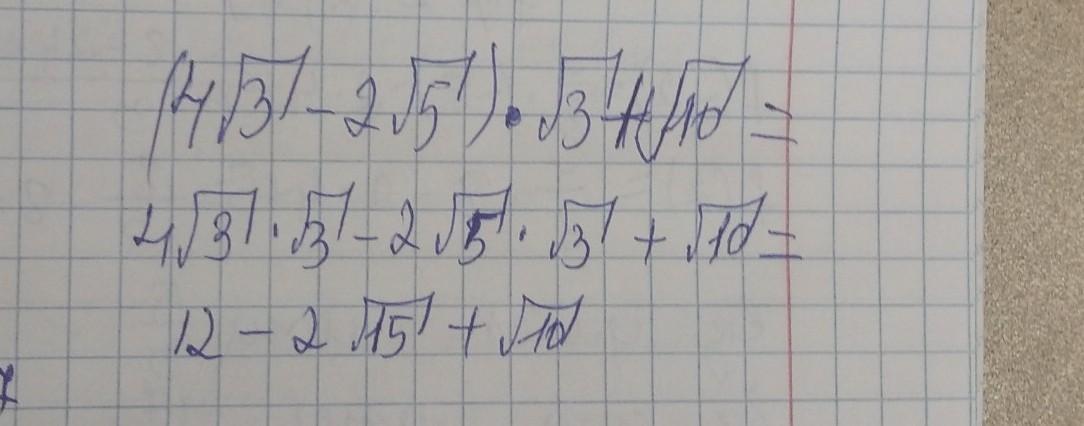 (4√3 - 2√5) · √3 + √10 =
4√3 · √3 - 2√5 · √3 + √10 =
12 - 2√15 + √10